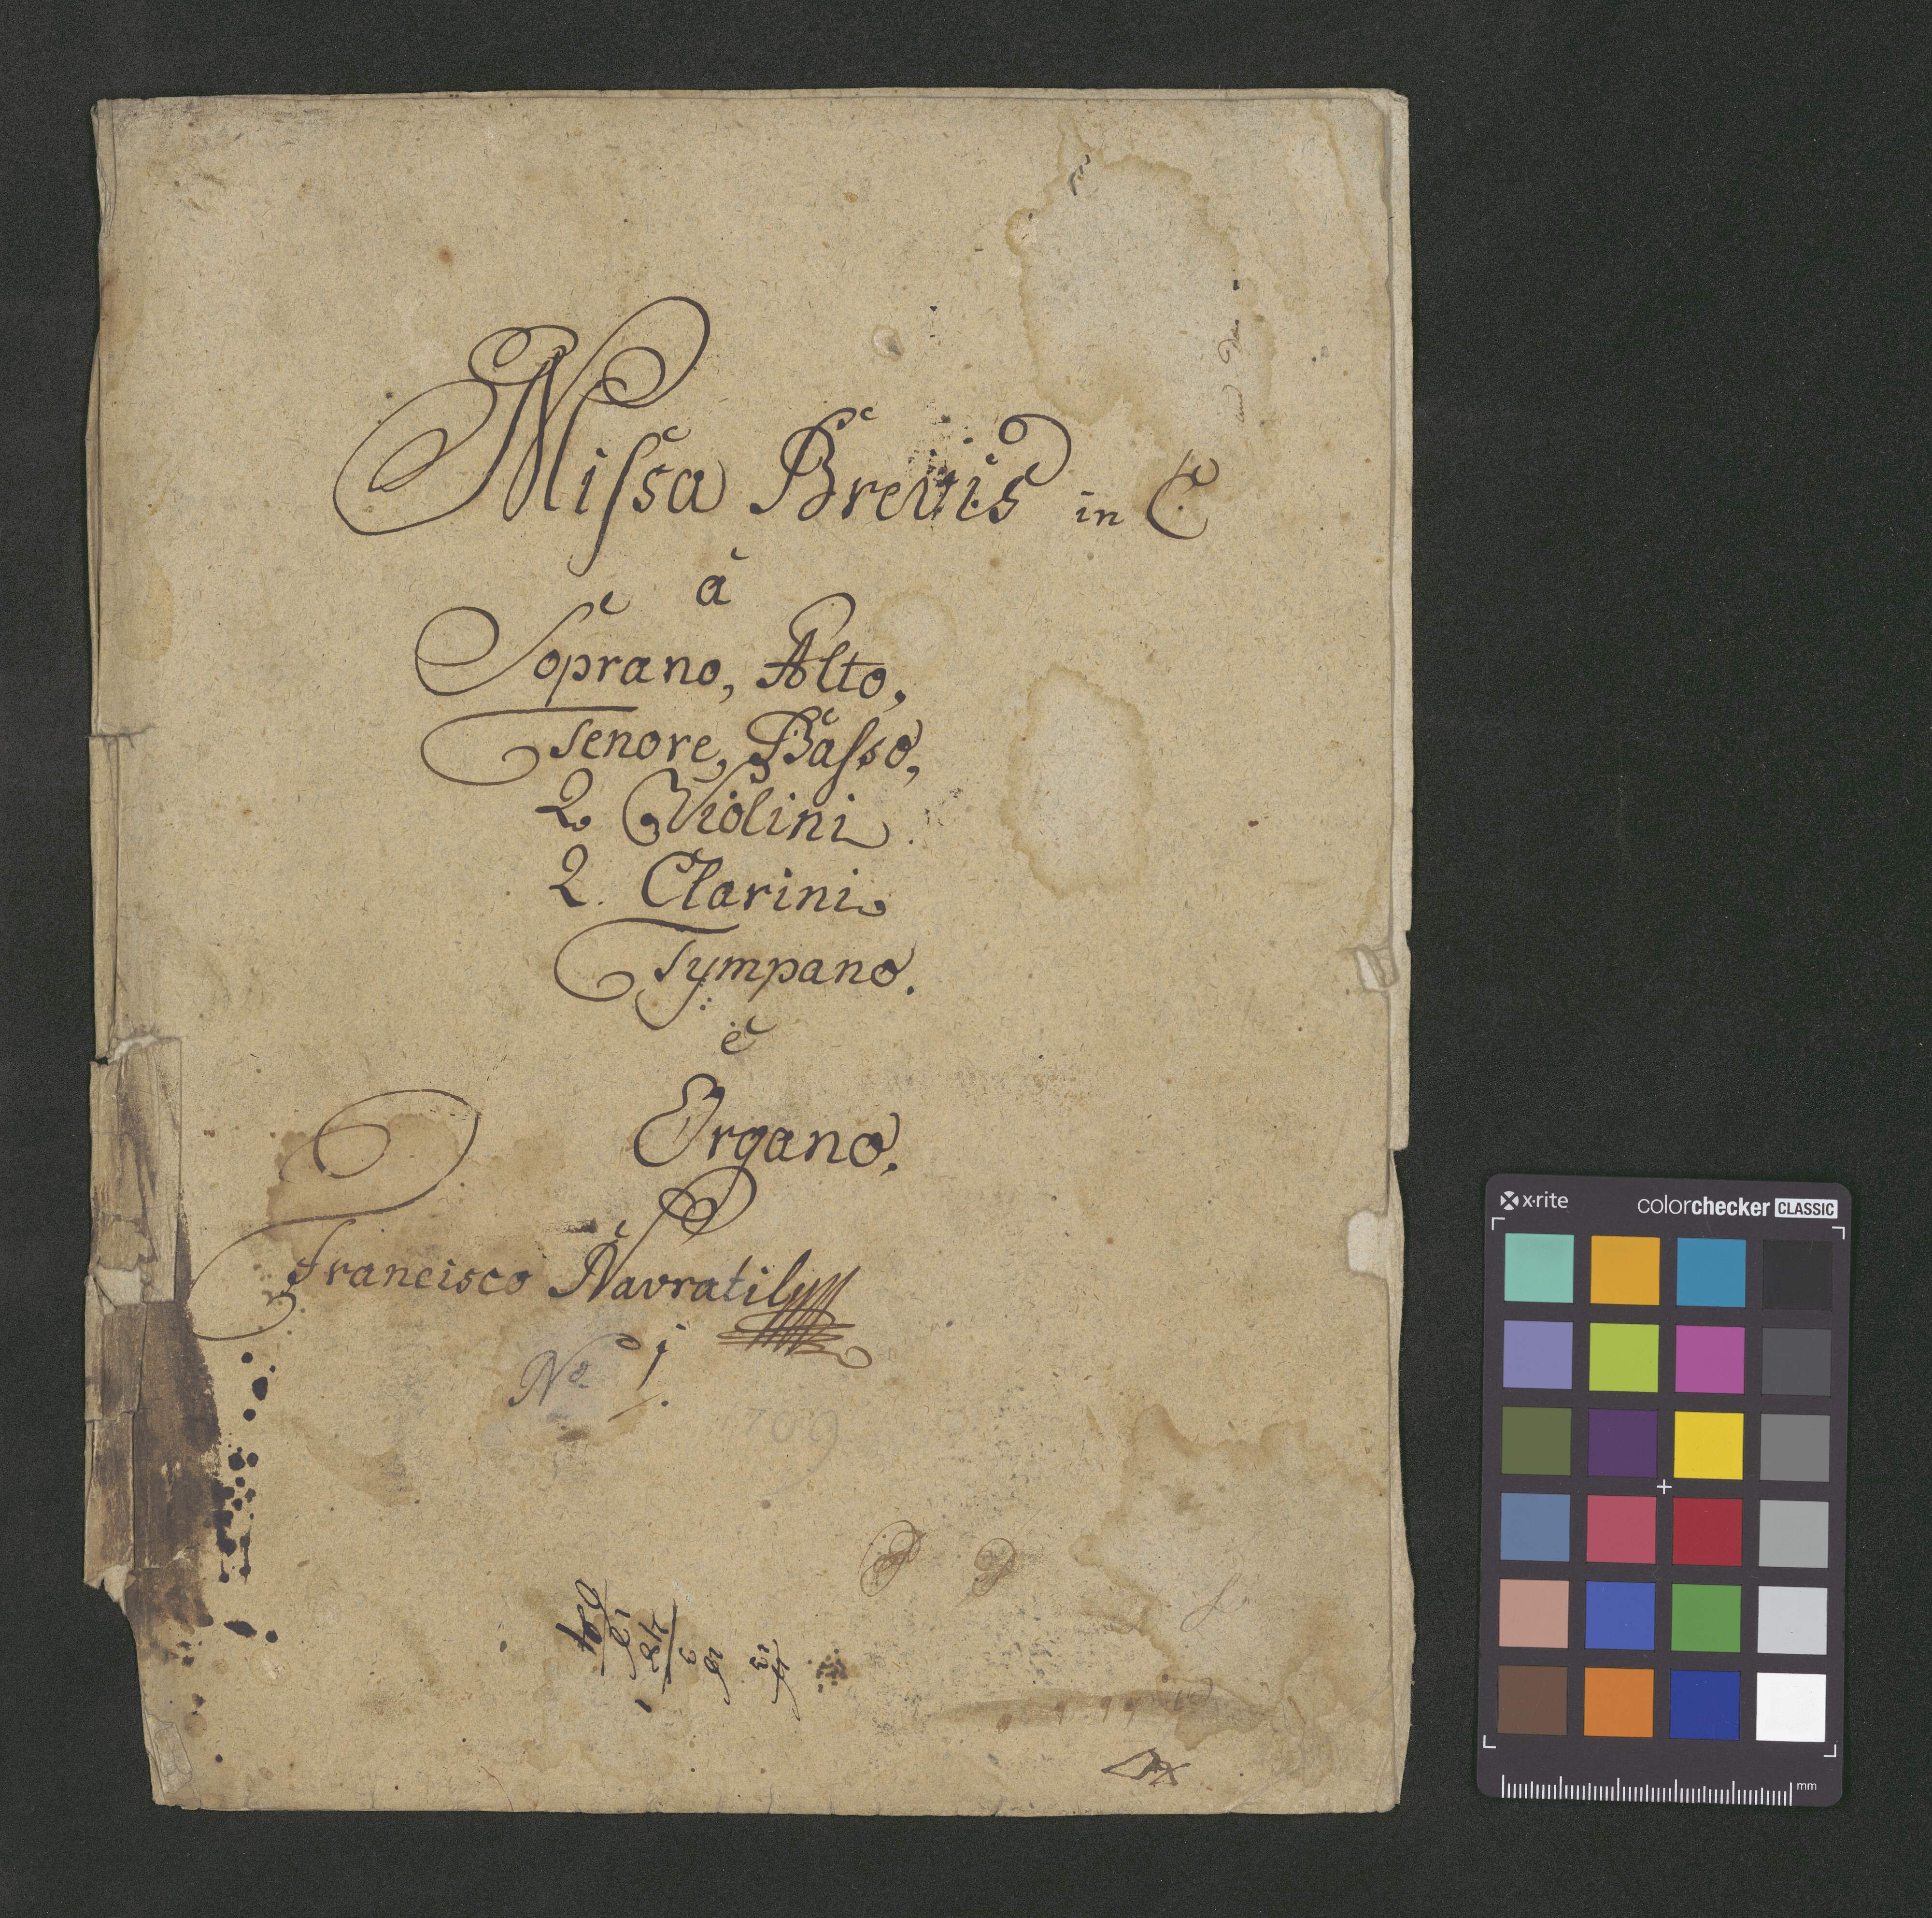 Miſsa Brevis in C
à
Soprano, Alto,
Tenore, Baſso,
2. Violini
2. Clarini
Tympano.
è
Organo.
Francisco Navratil
No 1.
1709
x-rite
colorchecker CLASSIC
mm